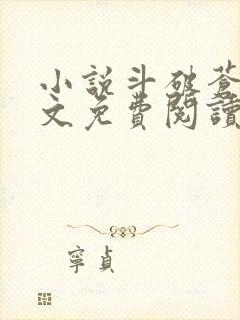 小說斗破蒼
文免費閱讀
寧貞